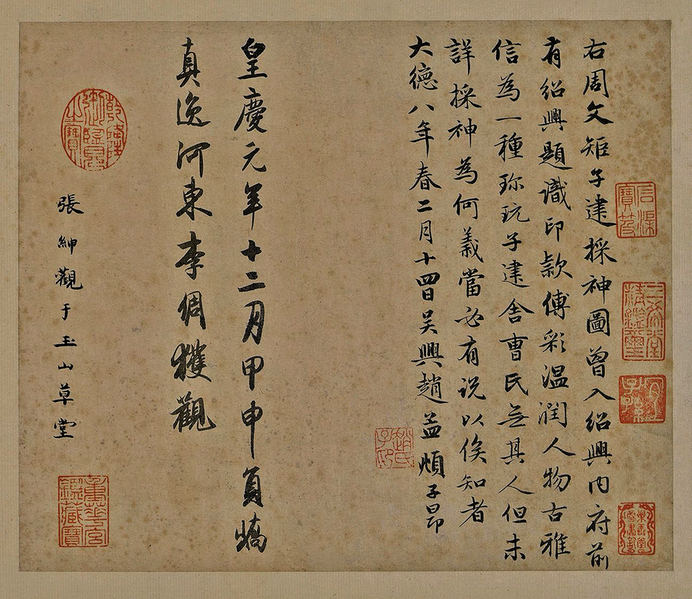 右周文矩子建採神圖曾入紹興内府前
有紹興題識印款傳彩温潤人物古雅
信為一種珎玩子建舍曹氏無其人但未
詳採神為何義當必有说以俟知者
大德八年春二月十四日吴興趙孟頫子昂
趙氏子昂
皇慶元年十二月甲申負嶠
真逸河東李倜獲觀
張紳觀于玉山草堂
乾隆御覽之寶